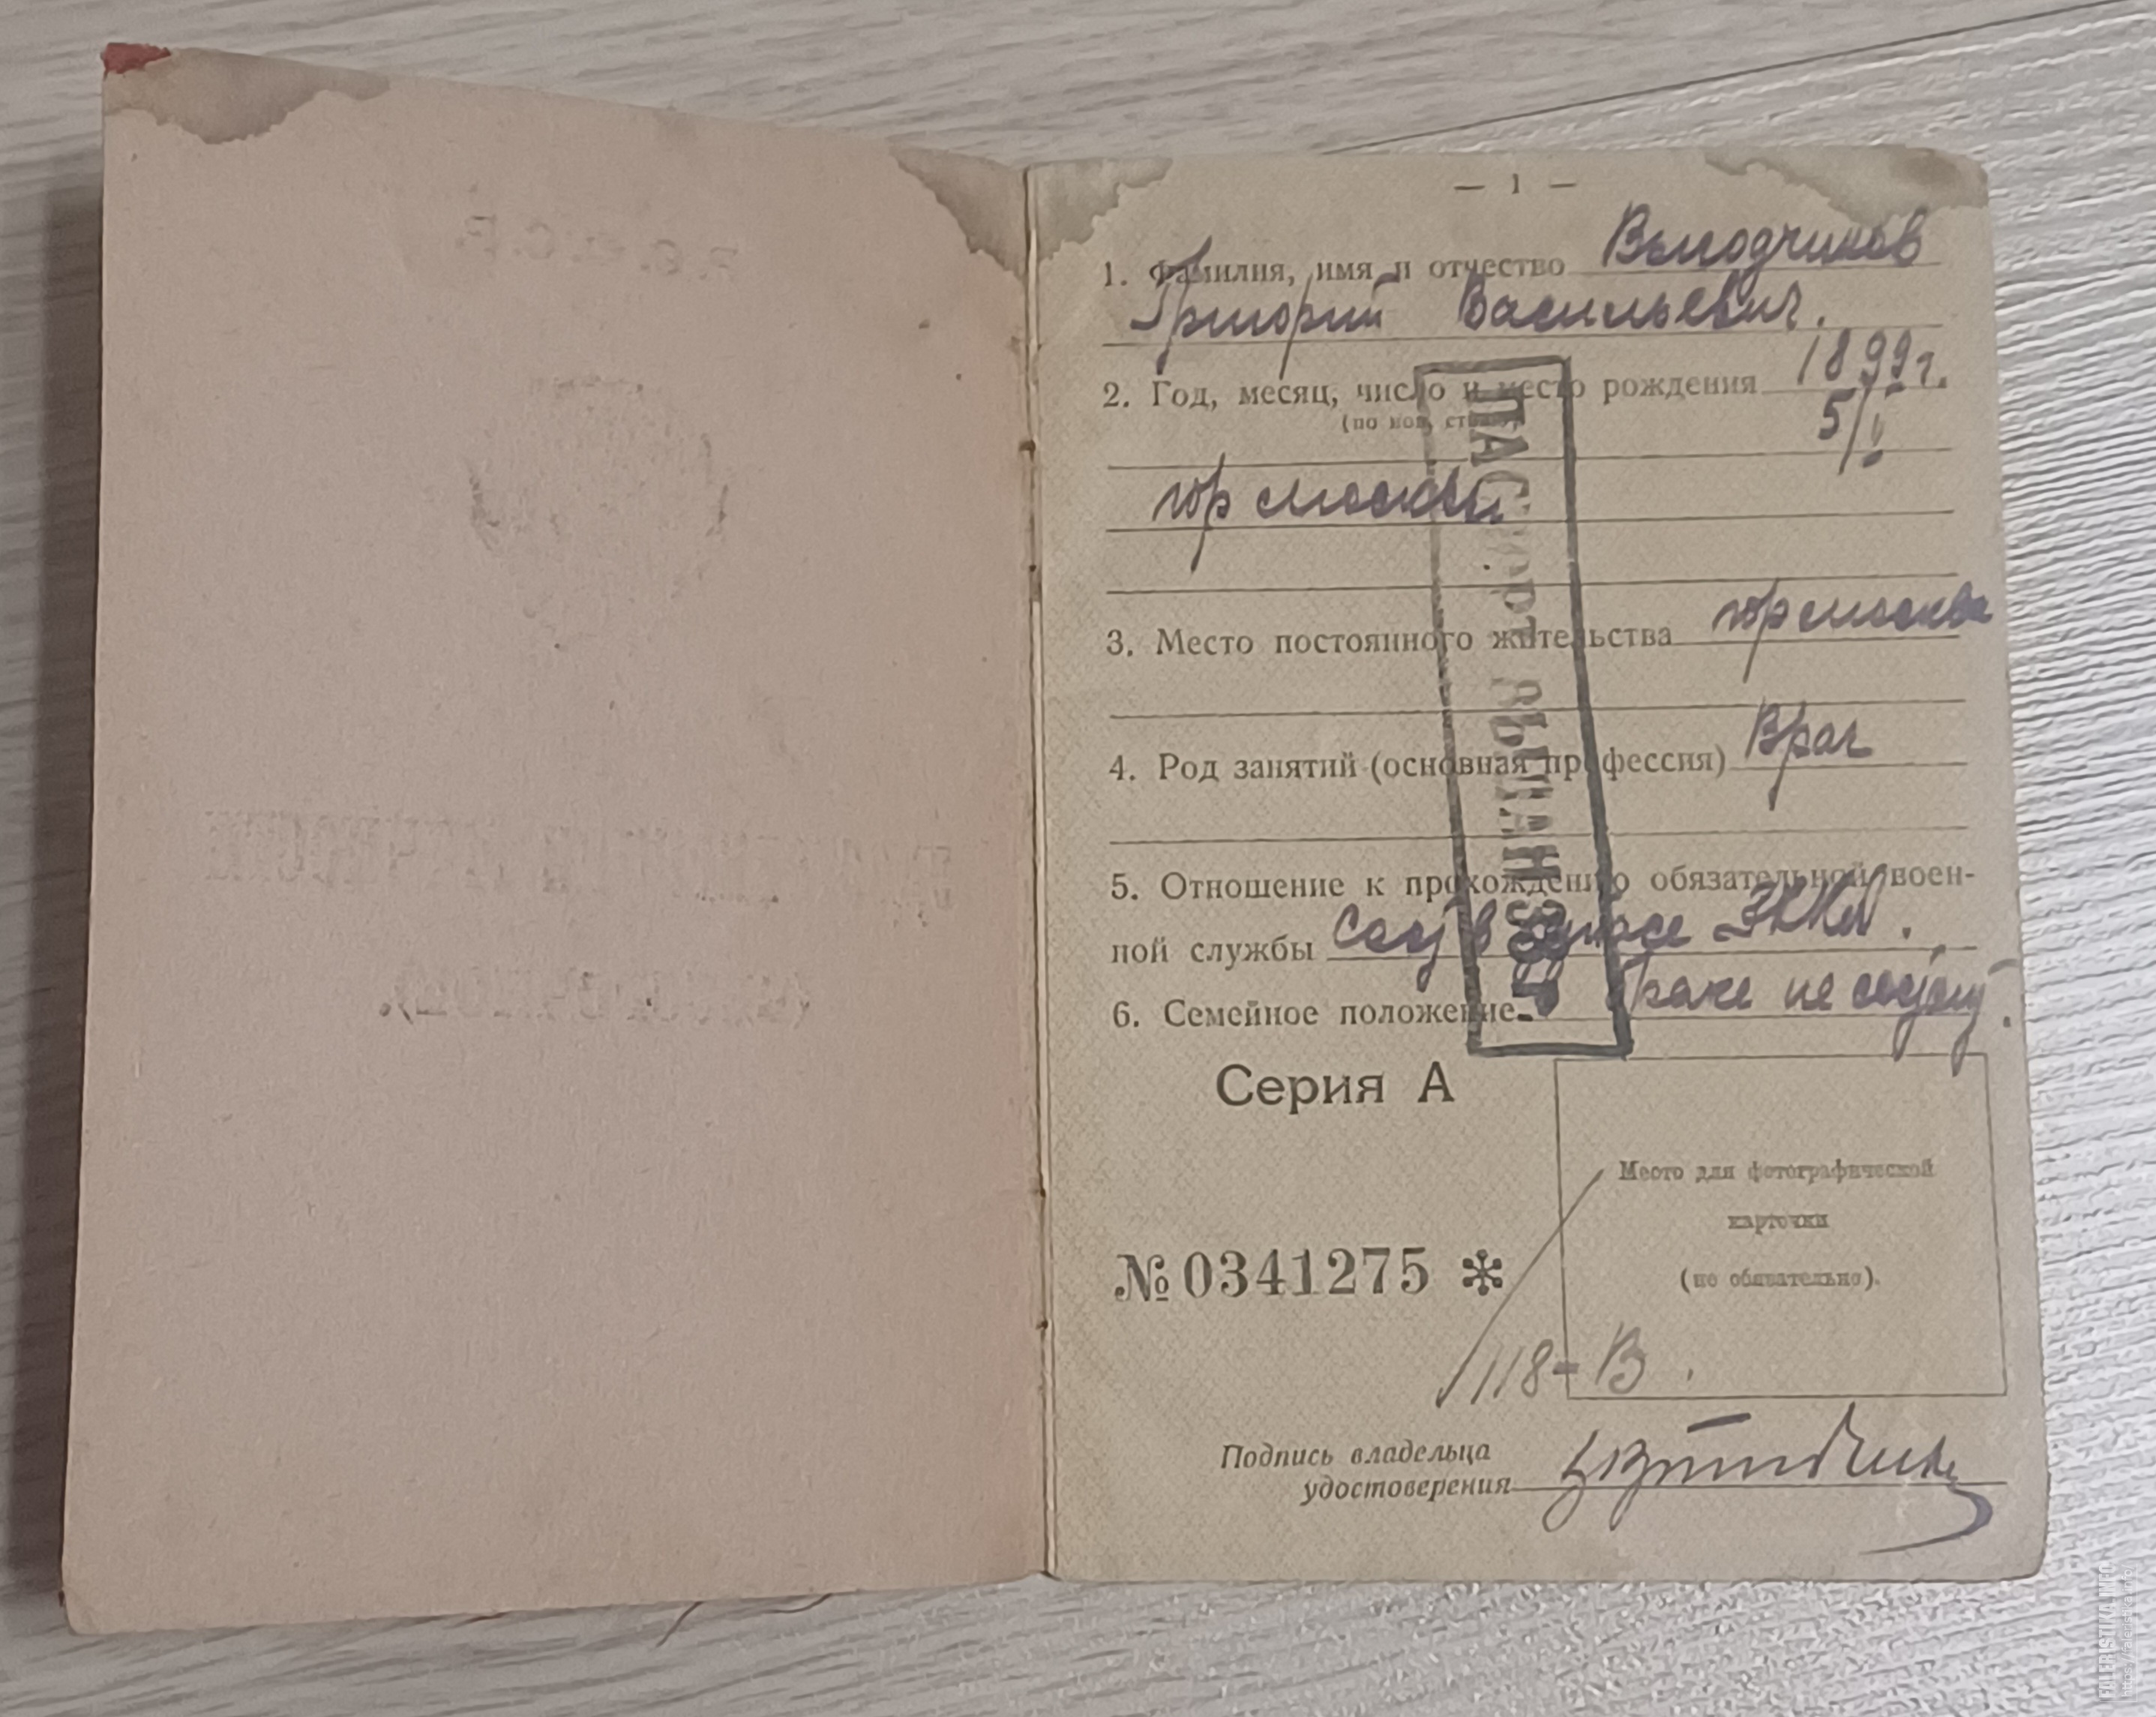 — 1 —
1. Фамилия, имя и отчество Выгодчиков
Григорий Васильевич.
2. Год, месяц, число и место рождения 1899 г.
(по нов. стилю)
5/I
гор Москвы
3. Место постоянного жительства гор Москва
4. Род занятий (основная профессия) Врач
5. Отношение к прохождению обязательной воен-
ной службы Сост в запасе РККА.
6. Семейное положение В браке не состоит.
ПАСПОРТ ВЫДАН
Серия А
Место для фотографической
карточки
(не обязательно).
№ 0341275 *
118-В.
Подпись владельца
удостоверения
FALERISTIKA.INFO
https://faleristika.info